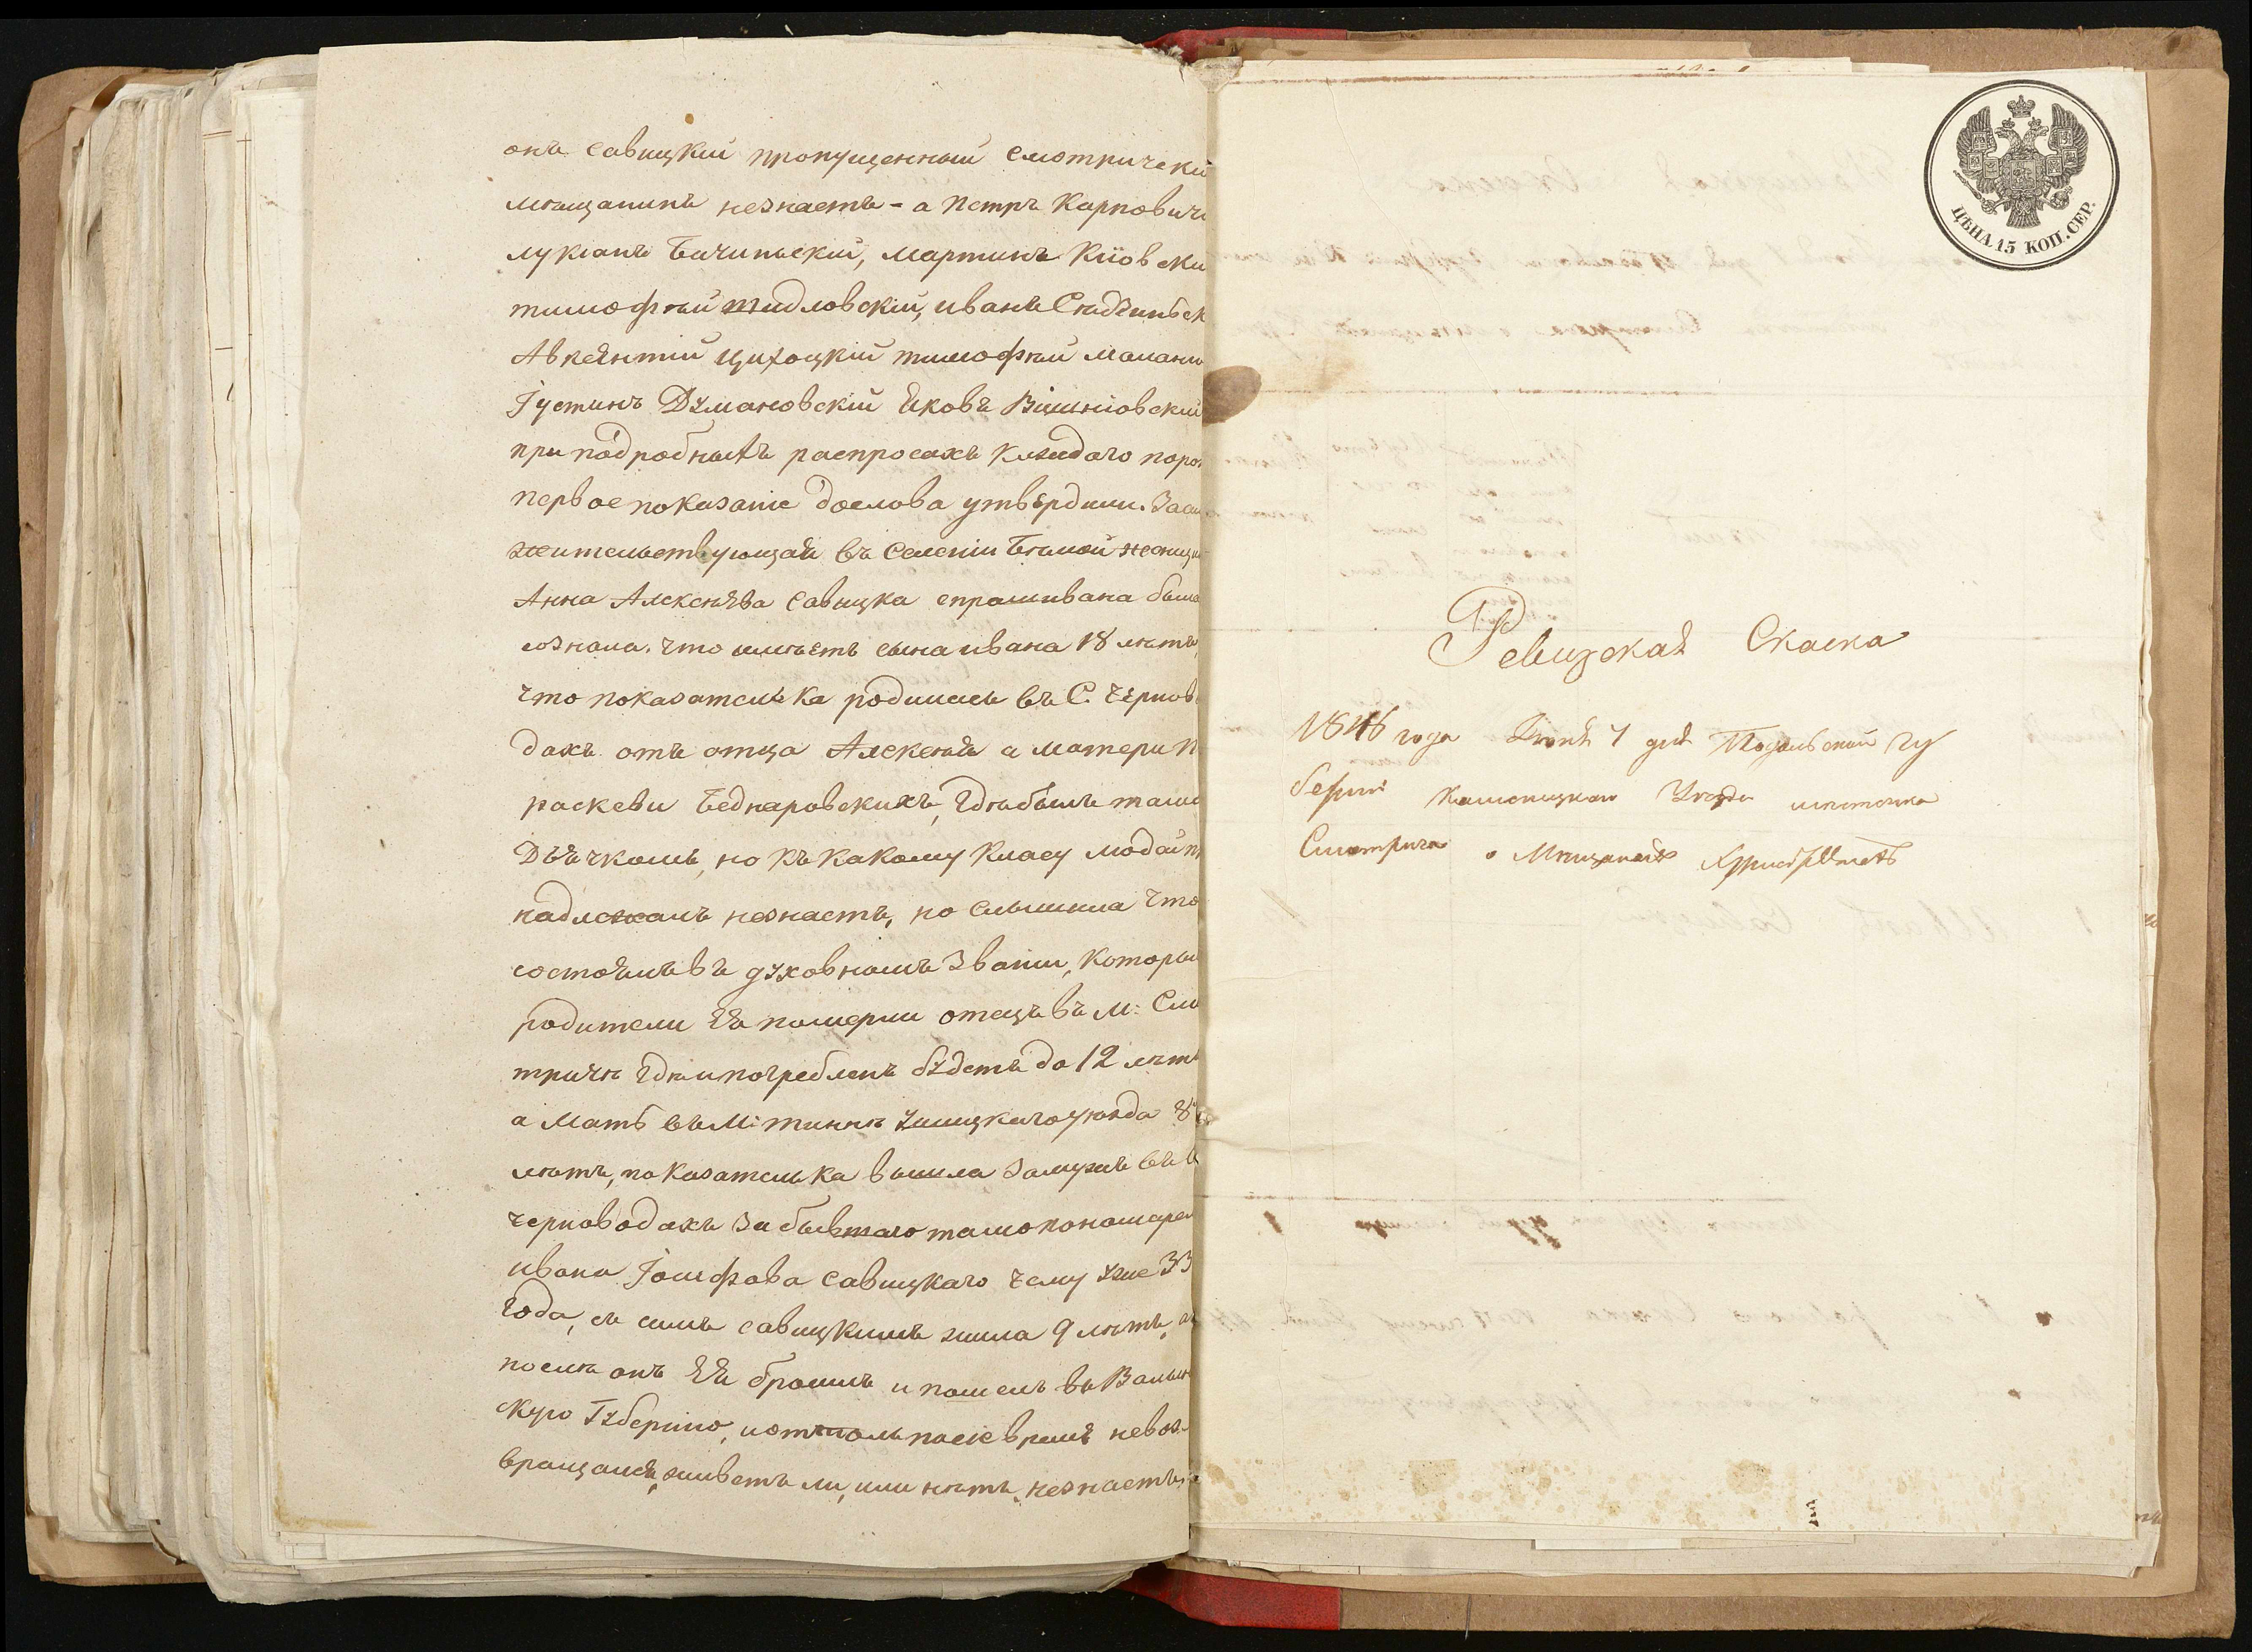 онъ Савицкий пропущенный Смотрический
мѣщанинъ незнаетъ - а Петръ Карповичъ
Лукіанъ Бачинскій, Мартинъ Кіовски
тимофѣй Шидловскій, иванъ
Авксентій Цихоцкій тимофѣй
Іустинъ Думановскій Яковъ Вишніовский
при подробныхъ распросахъ каждаго порознь
первое показаніе дослова утвердили. За симъ
жительствующая въ Селеніи Бѣлой женщи
Анна Алексѣева Савицка спрашивана была
сознала. что имѣетъ сына ивана 18 лѣтъ,
что показателька родилась въ С. Чернов
дахъ отъ отца Алексѣя а матери П
раскеви Беднаровскихъ, гдѣ былъ тамо
Дьячкомъ, но къ какому класу людей пр
надлежалъ незнаетъ, но слышила что
состоялъ въ духовномъ званіи, которы
родители Ея померли отецъ въ М: Смо
тричѣ гдѣ и погребленъ будетъ до 12 лѣтъ
а мать въ М: тиннѣ Ушицкаго уѣзда 8
лѣтъ, показателька вышла замужъ въ
черноводахъ за бывшаго тамо пономаремъ
ивана Іосифова Савицкаго чему уже 33
года, съ симъ Савицкимъ жила 9 лѣтъ, а
послѣ онъ Ея бросилъ и пошелъ въ Волын
скую Губернію, и оттоль по сіе время невоз-
вращался, живетъ ли, или нѣтъ, незнаетъ,
ЦѢНА 15 КОП. СЕР.
Ревизская Скаска
1846 года Іюня 7 дня Подольской гу
берніи Каменецкаго Уѣзда мѣстечка
Смотрича о Мѣщанахъ Христіянахъ